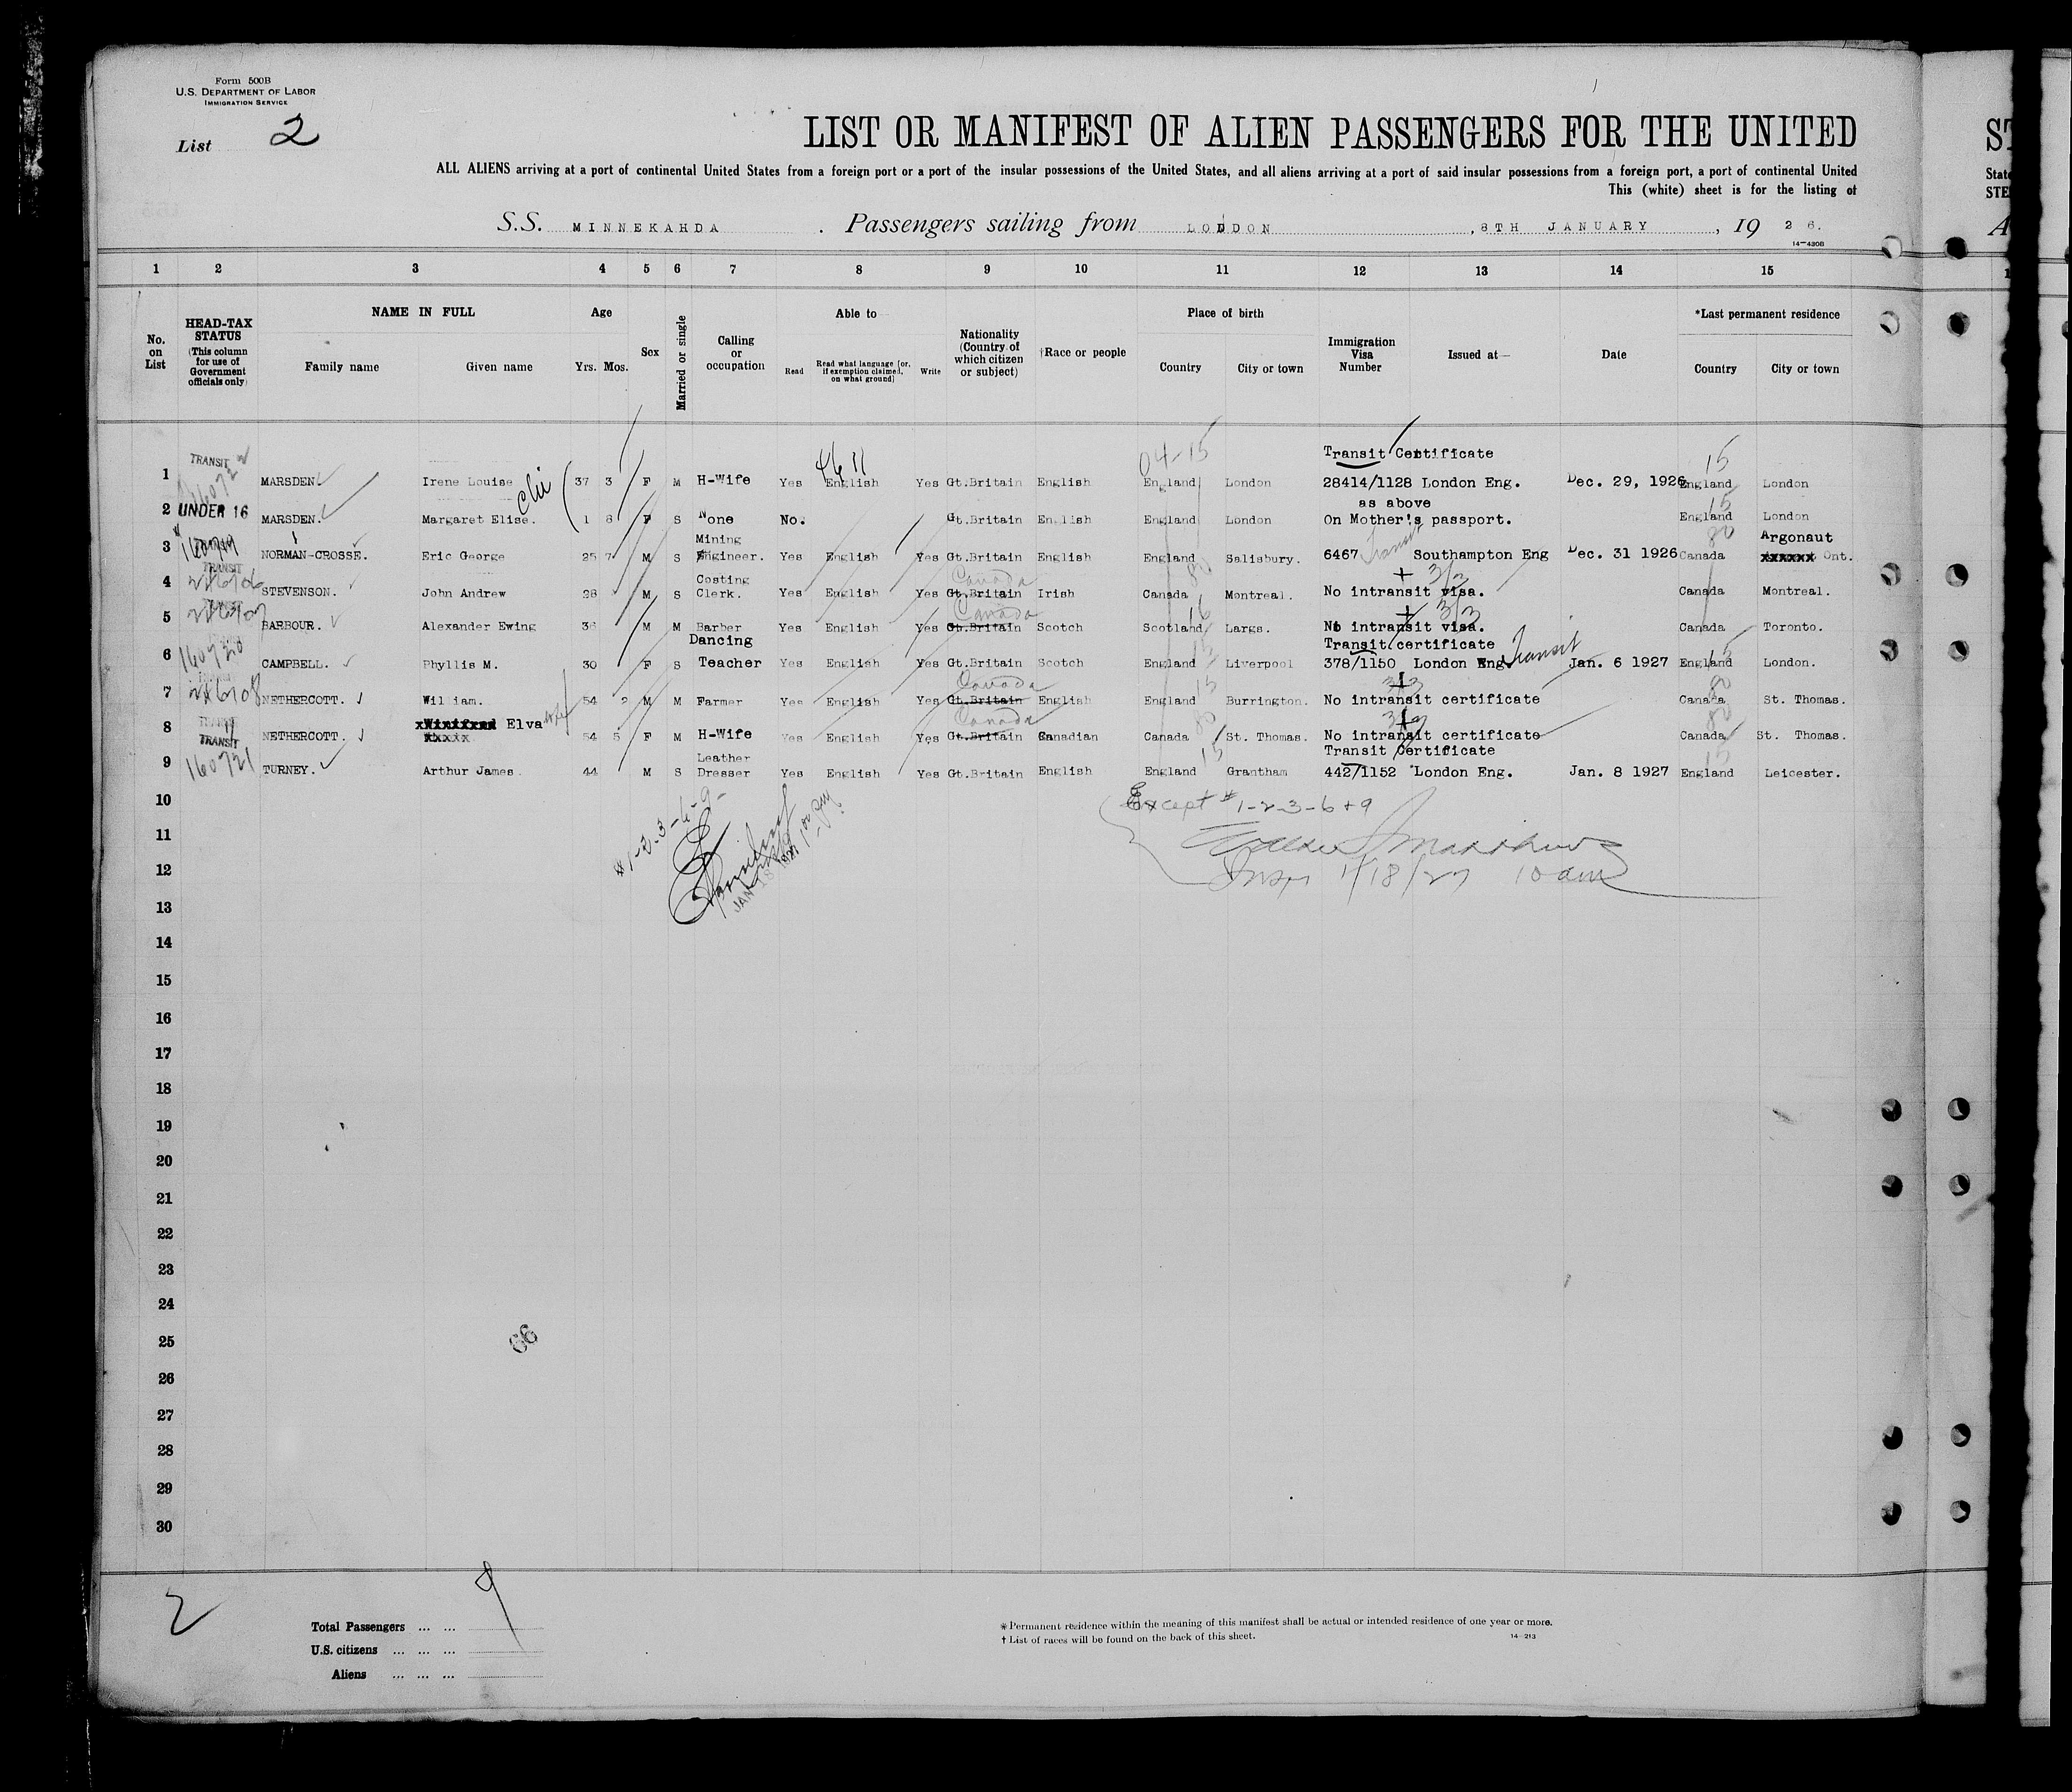 Form 500B
U.S. DEPARTMENT OF LABOR
IMMIGRATION SERVICE
List 2
LIST OR MANIFEST OF ALIEN PASSENGERS FOR THE UNITED
ALL ALIENS arriving at a port of continental United States from a foreign port or a port of the insular possessions of the United States, and all aliens arriving at a port of said insular possessions from a foreign port, a port of continental United
This (white) sheet is for the listing of
S.S. MINNEKAHDA . Passengers sailing from LONDON , 8TH JANUARY , 19 26.
14—430B
1 2 3 4 5 6 7 8 9 10 11 12 13 14 15
No. on List
HEAD-TAX STATUS (This column for use of Government officials only)
NAME IN FULL
Family name Given name
Age
Yrs. Mos.
Sex
Married or single
Calling or occupation
Able to
Read Read what language (or, if exemption claimed, on what ground) Write
Nationality (Country of which citizen or subject)
†Race or people
Place of birth
Country City or town
Immigration Visa Number
Issued at—
Date
*Last permanent residence
Country City or town
TRANSIT 4611 04-15 Transit Certificate 15
1 MARSDEN. Irene Louise 37 3 F M H-Wife Yes English Yes Gt.Britain English England London 28414/1128 London Eng. Dec. 29, 1926 England London
as above 15
2 UNDER 16 MARSDEN. Margaret Elise. 1 8 F S None No. Gt.Britain English England London On Mother's passport. England London
3 160719 NORMAN-CROSSE. Eric George 25 7 M S Mining Engineer. Yes English Yes Gt.Britain English England Salisbury. 6467 Transit Southampton Eng Dec. 31 1926 Canada Argonaut Ont.
TRANSIT Canada 3/3
4 STEVENSON. John Andrew 28 M S Costing Clerk. Yes English Yes Gt.Britain Irish Canada Montreal. No intransit visa. Canada Montreal.
Canada 16 3/3
5 BARBOUR. Alexander Ewing 36 M M Barber Yes English Yes Gt.Britain Scotch Scotland Largs. No intransit visa. Canada Toronto.
Transit certificate Transit
6 160720 CAMPBELL. Phyllis M. 30 F S Dancing Teacher Yes English Yes Gt.Britain Scotch England Liverpool 378/1150 London Eng. Jan. 6 1927 England London.
Canada 15 3/3 80
7 NETHERCOTT. William. 54 2 M M Farmer Yes English Yes Gt.Britain English England Burrington. No intransit certificate Canada St. Thomas.
Winifred Elva wife Canada
8 NETHERCOTT. 54 5 F M H-Wife Yes English Yes Gt.Britain Canadian Canada St. Thomas. No intransit certificate Canada St. Thomas.
TRANSIT Transit Certificate 15
9 160721 TURNEY. Arthur James. 44 M S Leather Dresser Yes English Yes Gt.Britain English England Grantham 442/1152 London Eng. Jan. 8 1927 England Leicester.
10
#1-2-3-6-9-
Except #1-2-3-6+9
11
12
Insp 1/18/27 10 am
JAN 18 1927
13
14
15
16
17
18
19
20
21
22
23
24
25
66
26
27
28
29
30
2
Total Passengers ... ... 9
U.S. citizens ... ... ...
Aliens ... ... ...
* Permanent residence within the meaning of this manifest shall be actual or intended residence of one year or more.
† List of races will be found on the back of this sheet.
14—213